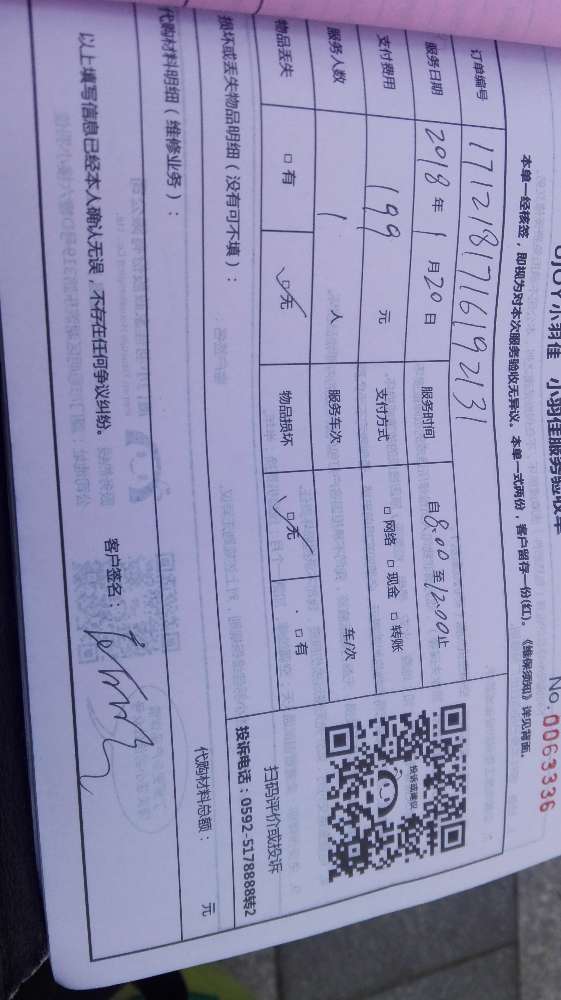 UJOY小羽佳 小羽佳服务验收单
No. 0063336
本单一经核签，即视为对本次服务验收无异议。本单一式两份，客户留存一份(红)。《维保须知》详见背面。
订单编号 171218171619213​1
服务日期 2018 年 1 月 20 日 服务时间 自 8:00 至 12:00 止
支付费用 199 元 支付方式 □ 网络 □ 现金 □ 转账
服务人数 1 人 服务车次 车/次
物品丢失 □ 有 □ 无 物品损坏 □ 无 □ 有
投诉或建议
扫码评价或投诉
投诉电话：0592-5178888转2
损坏或丢失物品明细（没有可不填）：
代购材料明细（维修业务）：
代购材料总额： 元
以上填写信息已经本人确认无误，不存在任何争议纠纷。 客户签名：